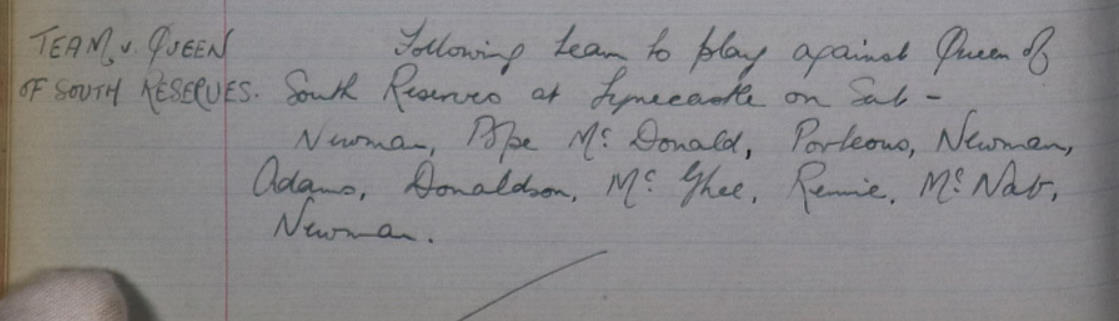 TEAM v. QUEEN
OF SOUTH RESERVES.
Following team to play against Queen of
South Reserves at Tynecastle on Sat -
Newman, Pope Mc Donald, Porteous, Newman,
Adams, Donaldson, Mc Ghee, Rennie, Mc Nab,
Newman.